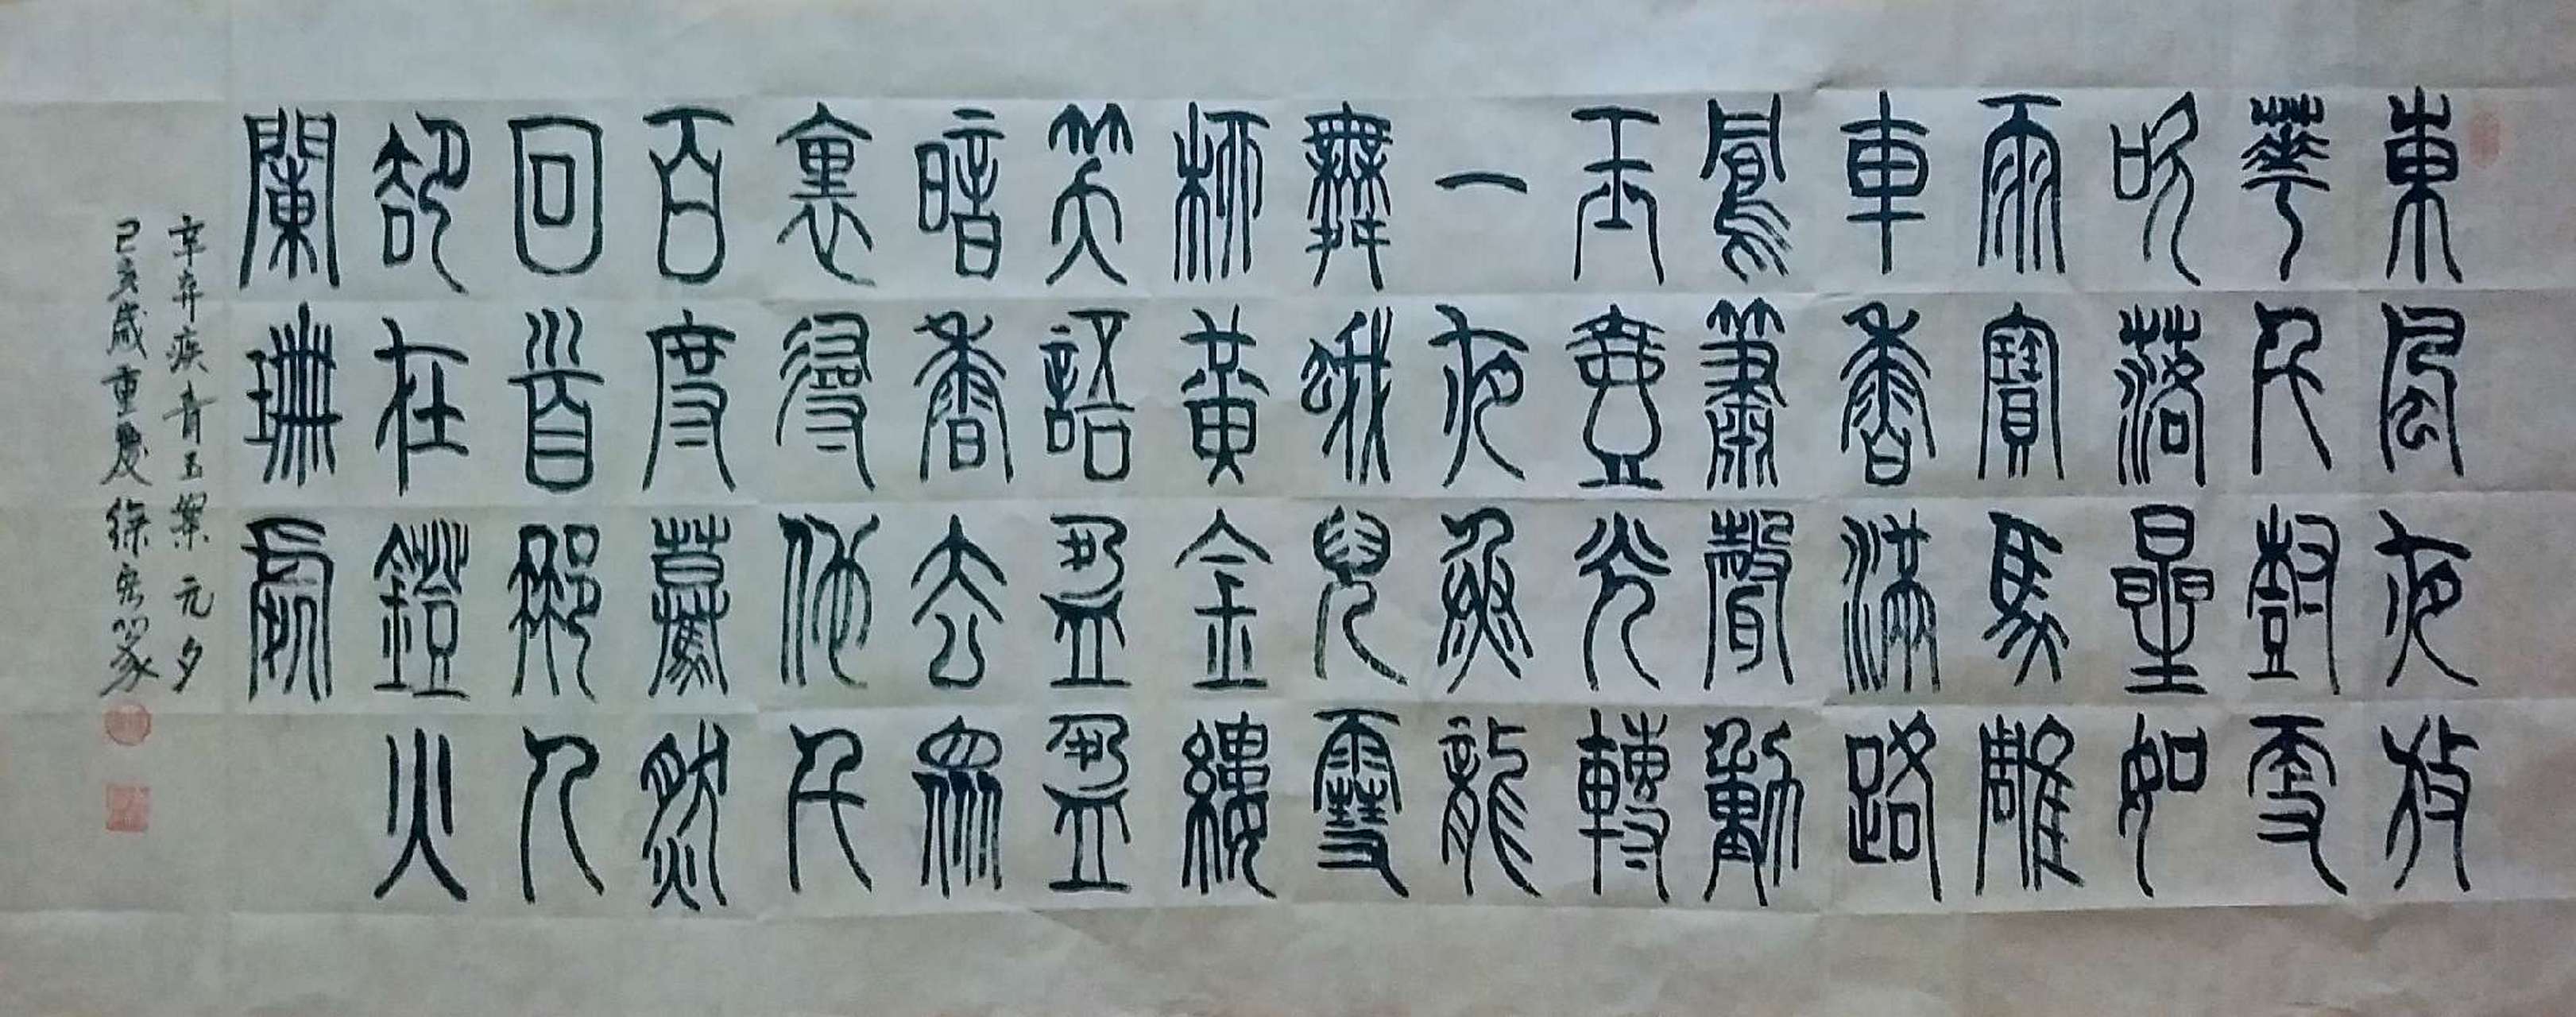 東風夜放
華千尌更
吹落星如
雨寶馬雕
車香滿路
鳳簫聲動
玉壺光轉
一夜魚龍
舞蛾兒雪
柳黃金縷
笑語盈盈
暗香去眾
裏尋他千
百度驀然
回首那人
卻在鐙火
闌珊處
辛弃疾青玉案元夕
己亥歲重慶徐宏篆